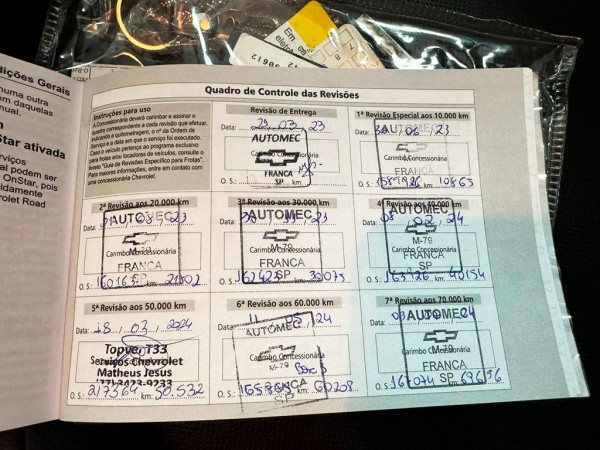 dições Gerais
numa outra
em daquelas
anual.
Star ativada
rviços
al podem ser
OnStar, pois
pidamente
rolet Road
Em ca
eletr
Quadro de Controle das Revisões
Instruções para uso
A Concessionária deverá carimbar e assinar o
quadro correspondente a cada revisão que efetuar,
indicando a quilometragem, o nº da Ordem de
Serviço e a data em que o serviço foi executado.
Caso o veículo pertença ao programa exclusivo
para frotas e/ou locadoras de veículos, consulte o
verso "Guia de Revisões Específico para Frotas".
Para maiores informações, entre em contato com
uma concessionária Chevrolet.
Revisão de Entrega
Data: 23, 03, 23
AUTOMEC
Carimbo Concessionária
FRANCA
SP
O. S.: km:
1ª Revisão Especial aos 10.000 km
AUTOMEC
Data: 06, 23
Carimbo Concessionária
FRANCA
O. S.: km: 10865
2ª Revisão aos 20.000 km
AUTOMEC
Data: 23
Carimbo Concessionária
FRANCA
SP
O. S.: km:
3ª Revisão aos 30.000 km
AUTOMEC
Data: 23
M-79
Carimbo Concessionária
FRANCA
SP
O. S.: 162423 km: 30075
4ª Revisão aos 40.000 km
AUTOMEC
Data: 02, 24
M-79
Carimbo Concessionária
FRANCA
SP
O. S.: km: 40154
5ª Revisão aos 50.000 km
Data: 18, 03, 2024
Topvel T33
Serviços Chevrolet
Matheus Jesus
(77)3423-9233
O. S.: 217364 km: 50.532
6ª Revisão aos 60.000 km
Data: 11, 05, 24
AUTOMEC
Carimbo Concessionária
M-79
FRANCA
SP
O. S.: km: 60208
7ª Revisão aos 70.000 km
Data: 24
AUTOMEC
Carimbo Concessionária
FRANCA
SP
O. S.: 167074 km: 69656